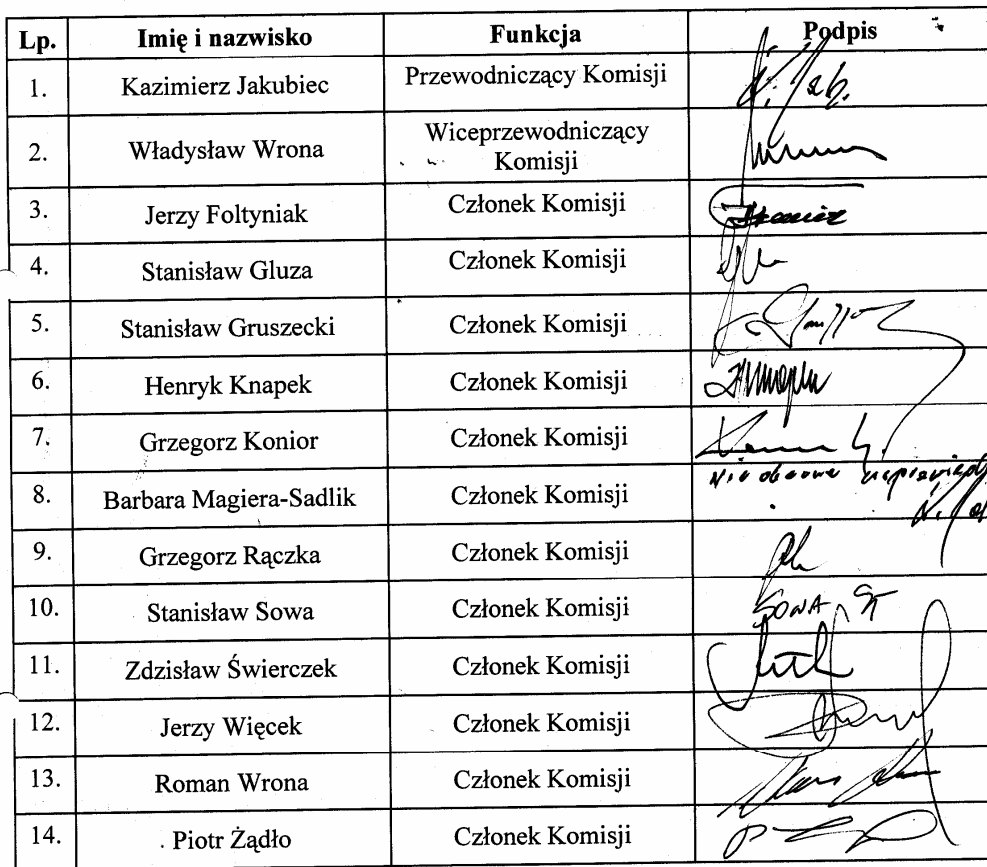 Lp. Imię i nazwisko Funkcja Podpis
1. Kazimierz Jakubiec Przewodniczący Komisji
2. Władysław Wrona Wiceprzewodniczący
Komisji
3. Jerzy Foltyniak Członek Komisji
4. Stanisław Gluza Członek Komisji
5. Stanisław Gruszecki Członek Komisji
6. Henryk Knapek Członek Komisji
7. Grzegorz Konior Członek Komisji
8. Barbara Magiera-Sadlik Członek Komisji
9. Grzegorz Rączka Członek Komisji
10. Stanisław Sowa Członek Komisji SOWA ST
11. Zdzisław Świerczek Członek Komisji
12. Jerzy Więcek Członek Komisji
13. Roman Wrona Członek Komisji
14. Piotr Żądło Członek Komisji